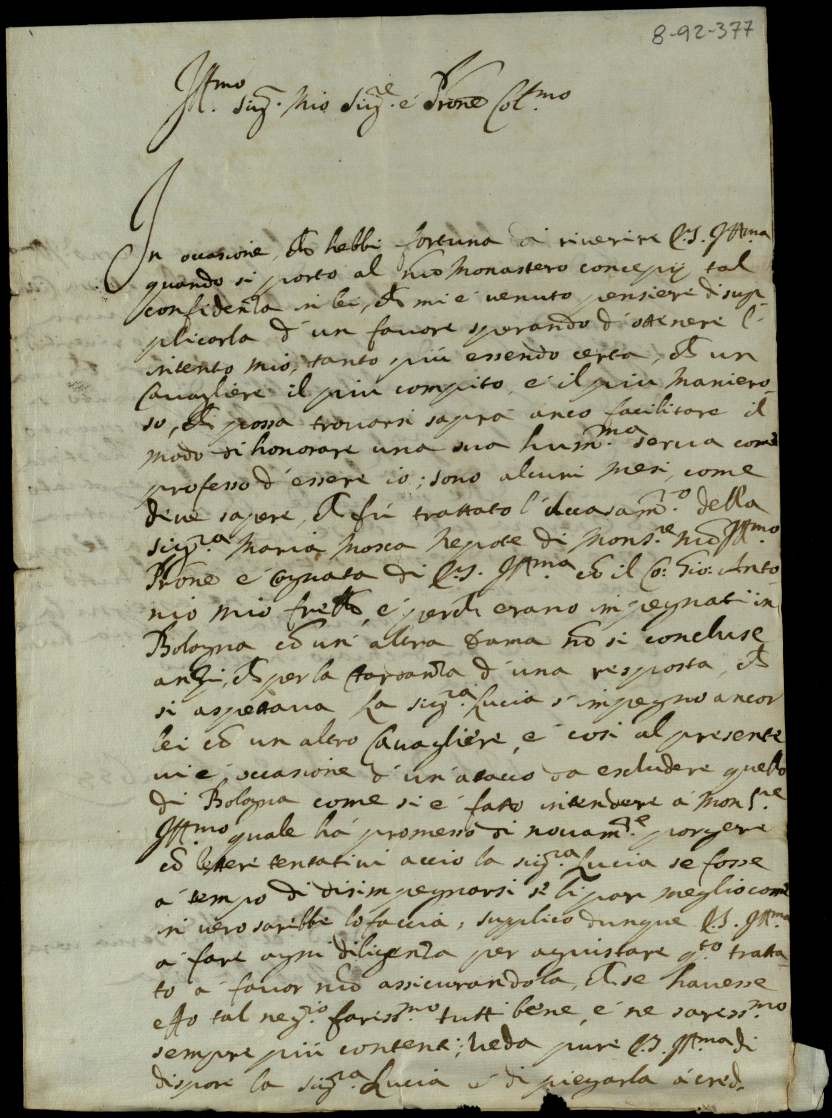 8-92-377
Ill.mo Sig.r Mio Sig.re e Prōne Col.mo
In occasione, ch hebbi fortuna di riverire V.S. Ill.ma
quando si portò al nrō Monastero concepij tal
confidenza in lei, ch mi è venuto pensiere di sup-
plicarla d'un favore sperando d'ottenere l'
intento mio, tanto più essendo certa, ch un
Cavagliere il più compito, e il più maniero-
so, ch possa trovarsi saprà anco facilitare il
modo di honorare una sua hum.ma serva come
professo d'essere io; sono alcuni mesi, come
deve sapere, ch fu trattato l'accasam.to della
Sig.ra Maria Mosca Nepote di Mons.re nrō Ill.mo
Prōne e Cognata di V.S. Ill.ma cō il Co: Gio: Anto
nio mio frēllo, e perch erano impegnati in
Bologna cō un'altra Dama nō si concluse
anzi, ch per la tardanza d'una risposta, ch
si aspettava la Sig.ra Lucia s'impegnò ancor
lei cō un altro Cavagliere, e così al presente
vi è occasione d'un'atacco da escludere quello
di Bologna come si è fatto intendere à Mons.re
Ill.mo quale hà promesso di novam.te porgere
cō lettere tentativi acciò la Sig.ra Lucia se fosse
à tempo di disimpegnarsi se li par meglio come
in vero sarebbe lo faccia; supplico dunque V.S. Ill.ma
à fare ogni diligenza per aquistare q.to tratta-
to à favor nrō assicurandola, ch se havesse
effo tal neg.io faress.mo tutti bene, e ne saress.mo
sempre più contenti; veda pure V.S. Ill.ma di
dispore la Sig.ra Lucia e di piegarla à cred-